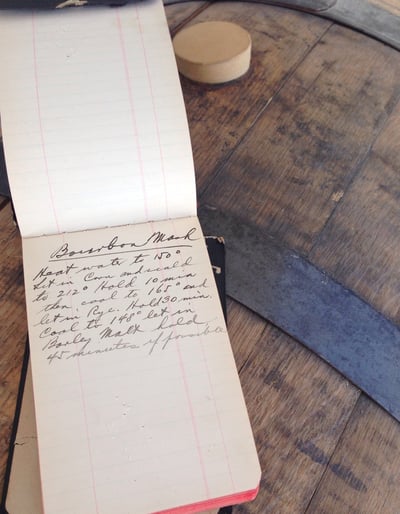 Bourbon Mash
Heat water to 150°
Let in Corn and scald
to 212° Hold 10 min
then cool to 165° and
let in Rye. Hold 30 min.
Cool to 148° let in
Barley Malt hold
45 minutes if possible